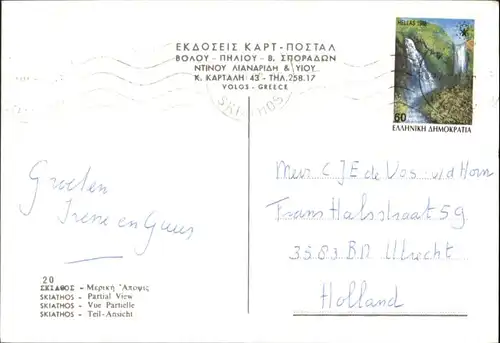 ΕΚΔΟΣΕΙΣ ΚΑΡΤ - ΠΟΣΤΑΛ
ΒΟΛΟΥ - ΠΗΛΙΟΥ - Β. ΣΠΟΡΑΔΩΝ
ΝΤΙΝΟΥ ΛΙΑΝΑΡΙΔΗ & ΥΙΟΥ
Κ. ΚΑΡΤΑΛΗ 43 - ΤΗΛ. 258.17
VOLOS - GREECE
HELLAS 1988
60
ΕΛΛΗΝΙΚΗ ΔΗΜΟΚΡΑΤΙΑ
SKIATHOS
Groeten
Irene en Guus
Mevr C J E de Vos v/d Horn
Frans Halsstraat 59
3583 BN Utrecht
Holland
20
ΣΚΙΑΘΟΣ - Μερική Ἄποψις
SKIATHOS - Partial View
SKIATHOS - Vue Partielle
SKIATHOS - Teil-Ansicht